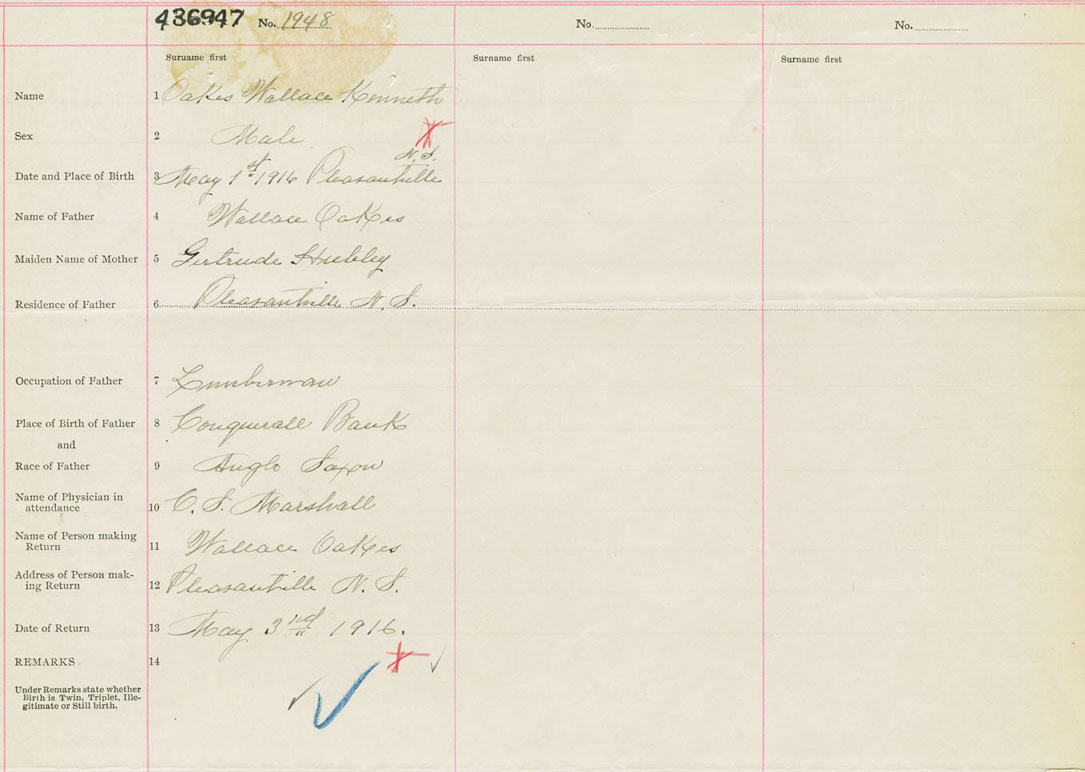 436947 No. 1948 No. No.
Surname first Surname first Surname first
Name 1 Oakes Wallace Kenneth
Sex 2 Male
N.S.
Date and Place of Birth 3 May 1st 1916 Pleasantville
Name of Father 4 Wallace Oakes
Maiden Name of Mother 5 Gertrude Hubley
Residence of Father 6 Pleasantville N. S.
Occupation of Father 7 Lumberman
Place of Birth of Father 8 Conquerall Bank
and
Race of Father 9 Anglo Saxon
Name of Physician in
attendance 10 C. S. Marshall
Name of Person making
Return 11 Wallace Oakes
Address of Person mak-
ing Return 12 Pleasantville N. S.
Date of Return 13 May 3rd 1916.
REMARKS 14
Under Remarks state whether
Birth is Twin, Triplet, Ille-
gitimate or Still birth.